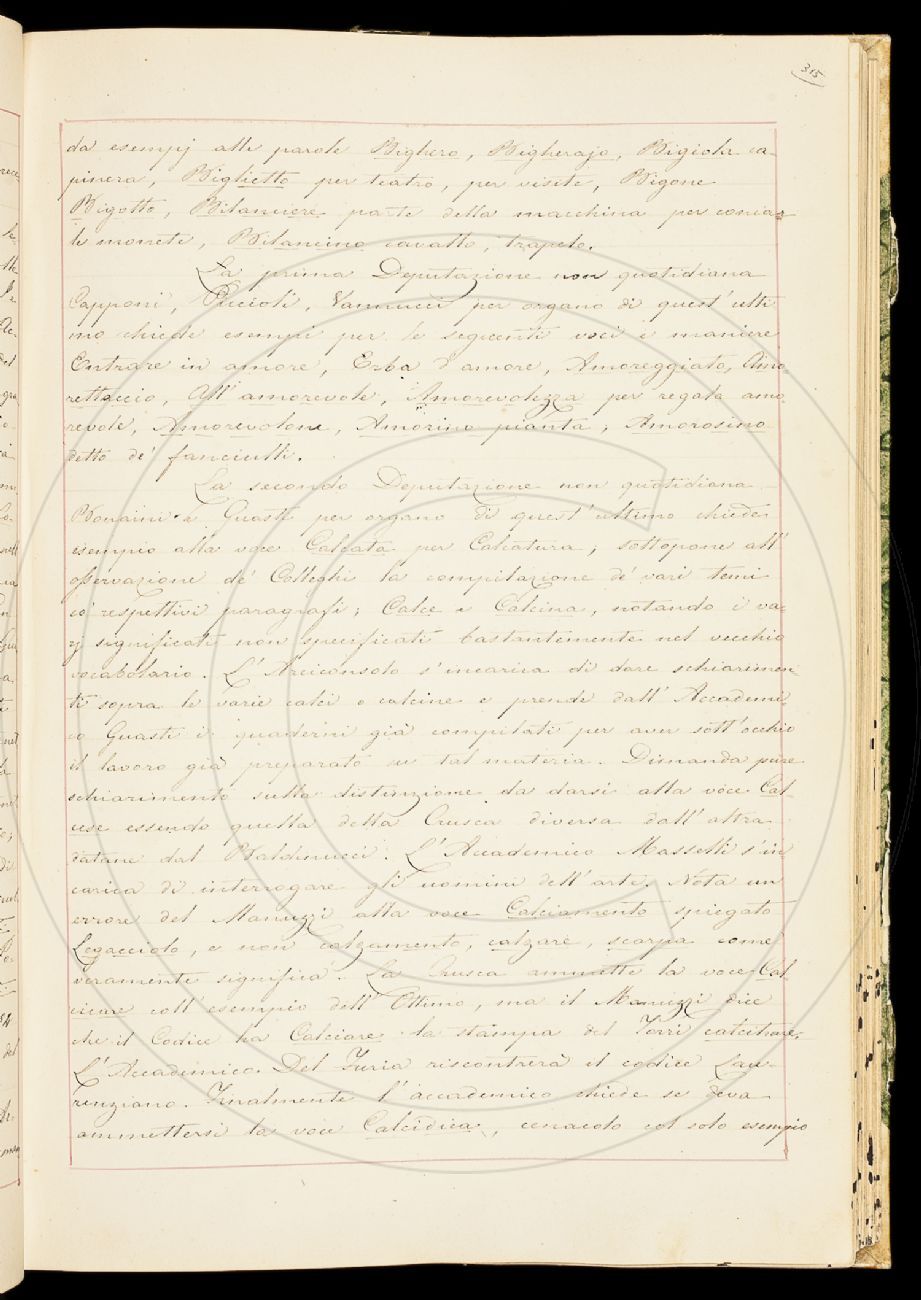 315
da esempj alle parole Bighero, Bigherajo, Bigiola ca-
pinera, Biglietto per teatro, per visite, Bigone
Bigotto, Bilanciere parte della macchina per coniar
le monete, Bilancino cavallo, trapelo.
La prima Deputazione non quotidiana
Capponi, Puccioli, Vannucci per organo di quest'ulti
mo chiede esempi per le seguenti voci e maniere
Entrare in amore, Erba d'amore, Amoreggiato, Amo-
rettaccio, All'amorevole, Amorevolezza per regalo amo
revole, Amorevolone, Amorino pianta, Amorosino
detto de' fanciulli.
La seconda Deputazione non quotidiana
Bonaini e Guasti per organo di quest'ultimo chiede
esempio alla voce Calcata per Calcatura, sottopone all'
osservazione de' Colleghi la compilazione de' vari temi
co' respettivi paragrafi; Calce e Calcina, notando i va-
rj significati non specificati bastantemente nel vecchio
vocabolario. L'Arciconsolo s'incarica di dare schiarimen-
ti sopra le varie calci o calcine e prende dall'Accademi-
co Guasti i quaderni già compilati per aver sott'occhio
il lavoro già preparato su tal materia. Dimanda pure
schiarimento sulla distinzione da darsi alla voce Cal-
cese essendo quella della Crusca diversa dall'altra
datane dal Baldinucci. L'Accademico Masselli s'in
carica di interrogare gli uomini dell'arte. Nota un
errore del Manuzzi alla voce Calciamento spiegato
Legacciolo, e non calzamento, calzare, scarpa come
veramente significa. La Crusca ammette la voce Cal-
cicare coll'esempio dell'Ottimo, ma il Manuzzi dice
che il Codice ha Calciare la stampa del Torri calcitrare.
L'Accademico Del Furia riscontrerà il codice Lau-
renziano. Finalmente l'accademico chiede se deva
ammettersi la voce Calcidica, cenacolo col solo esempio